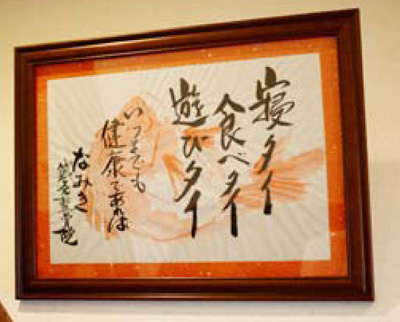 寝タイ
食べタイ
遊びタイ
いつまでも
健康であれば
なみき